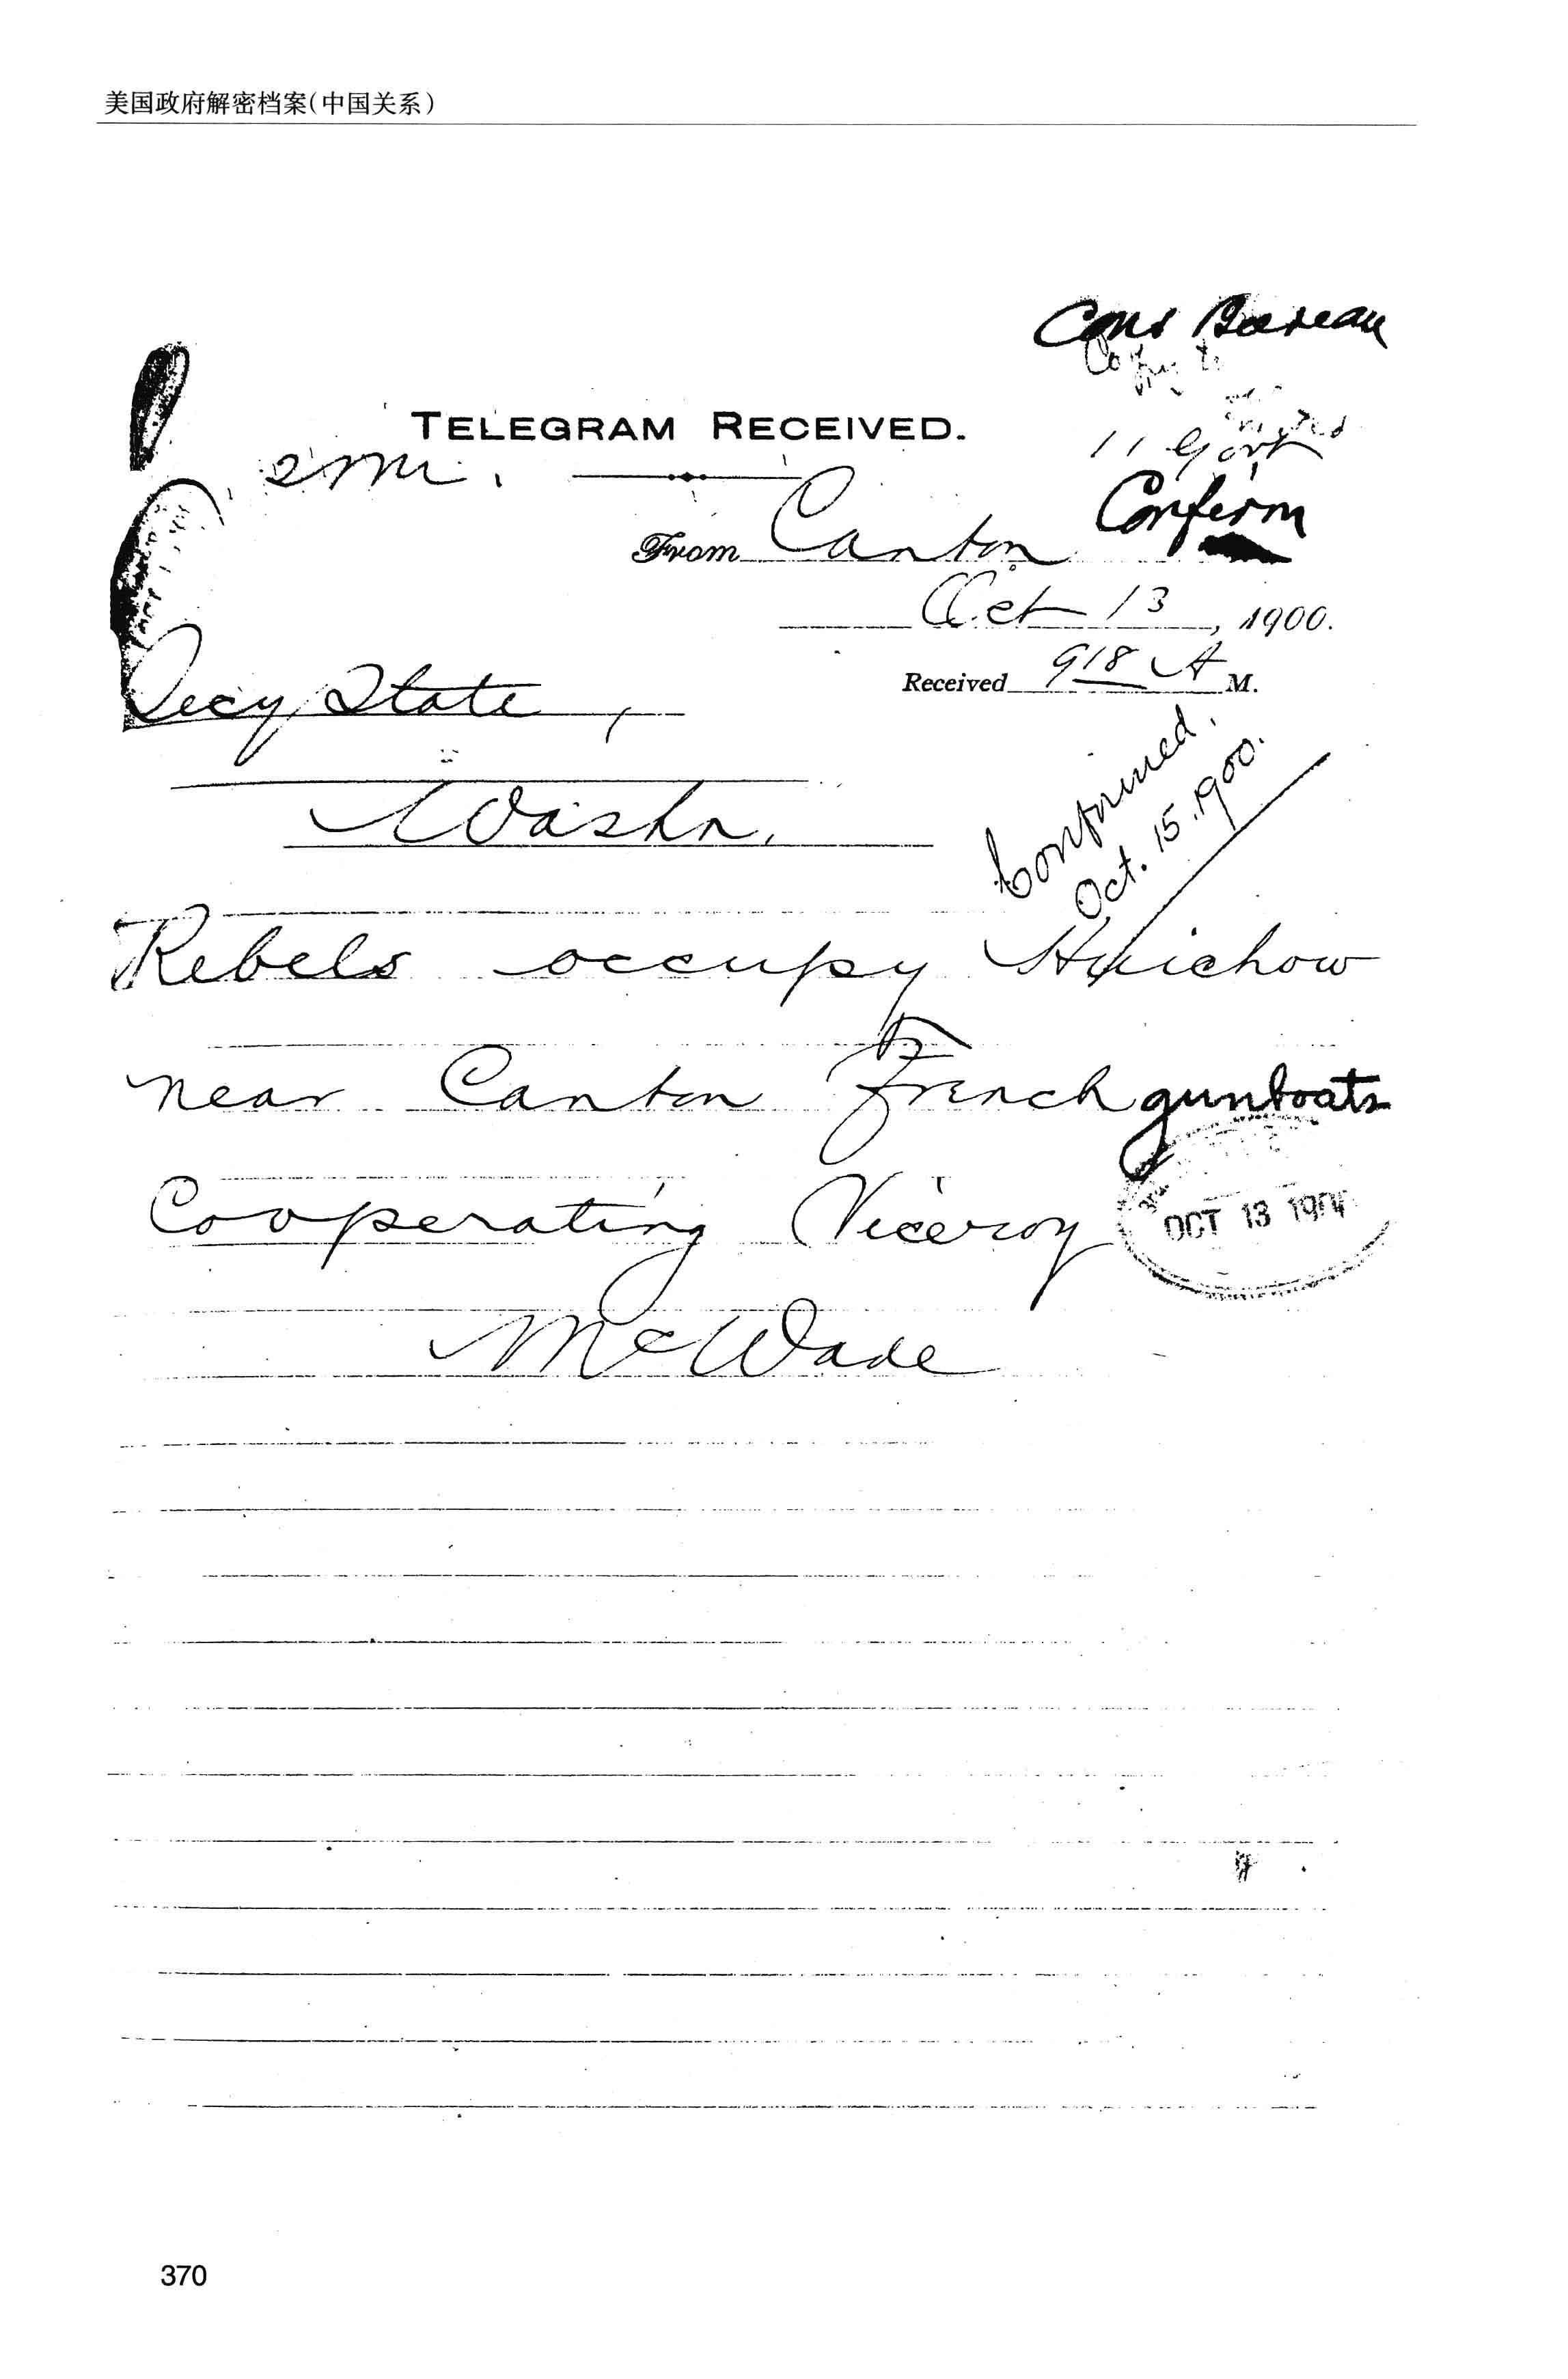 美国政府解密档案(中国关系)
Cons Bureau
Copy to
TELEGRAM RECEIVED.
11 Govt
Confirm
From Canton
Oct 13, 1900.
Received 918 A M.
Secy State,
Washn.
Confirmed.
Oct. 15. 1900.
Rebels occupy Huichow
near Canton French gunboats
Cooperating Viceroy
OCT 13 190
McWade
370